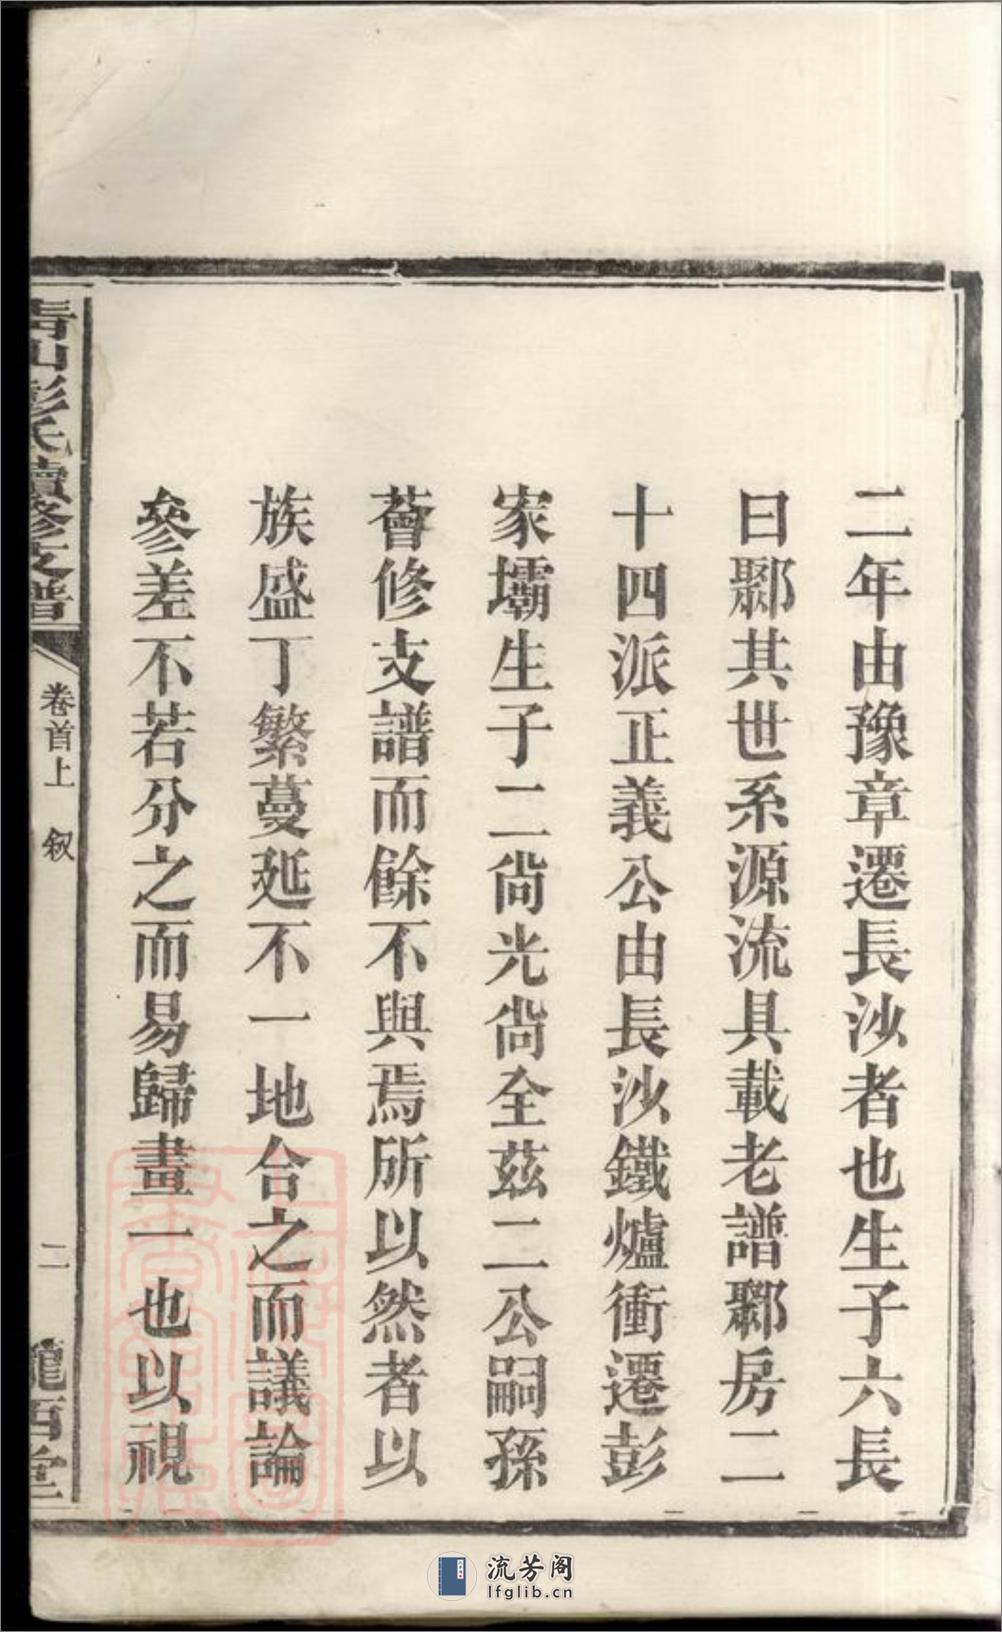 二年由豫章遷長沙者也生子六長
曰鄹其世系源流具載老譜鄹房二
十四派正義公由長沙鐵爐衝遷彭
家壩生子二尙光尙全茲二公嗣孫
薈修支譜而餘不與焉所以然者以
族盛丁繁蔓延不一地合之而議論
參差不若分之而易歸畫一也以視
青山彭氏續修支譜
卷首上
敘
二
隴西堂
流芳阁
lfglib.cn